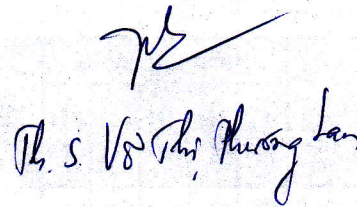 Th.S. Võ Thị Phương Lan